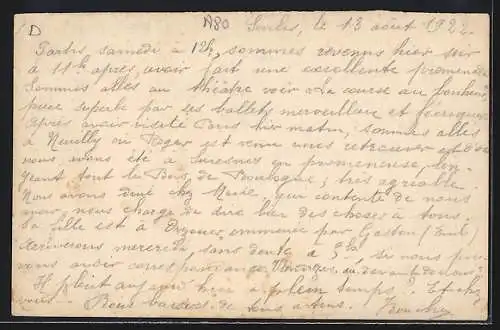 D A80 Senlis, le 13 août 1922
Partis samedi à 12h, sommes revenus hier soir
à 11h après avoir fait une excellente promenade
Sommes allés au théâtre voir "La course au bonheur"
pièce superbe par ses ballets merveilleux et féeriques
Après avoir visité Paris hier matin, sommes allés
à Neuilly où Roger est venu nous retrouver et
nous avons été à Suresnes en promeneuse, lon-
geant tout le Bois de Boulogne; très agréable.
Nous avons diné chez, contente de nous
avoir, nous charge de dire bien des choses à tous.
Sa fille est à emmenée par Gaston
arriverons mercredi sans doute à 5h si nous pou-
vons avoir correspondance,
Il pleut aujourd'hui, quel temps? Et chez
vous Bons baisers de tous